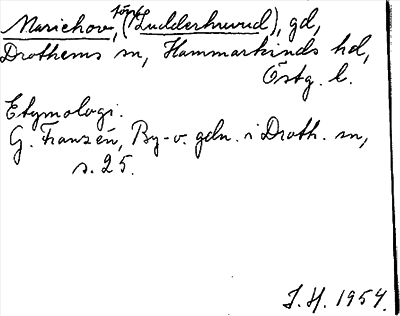 Mariehov, (förut Ludderhuvud), gd,
Drothems sn, Hammarkinds hd,
Östg. l.
Etymologi.
G. Franzén, By- o. gdn. i Droth. sn,
s. 25.
J. H. 1954.